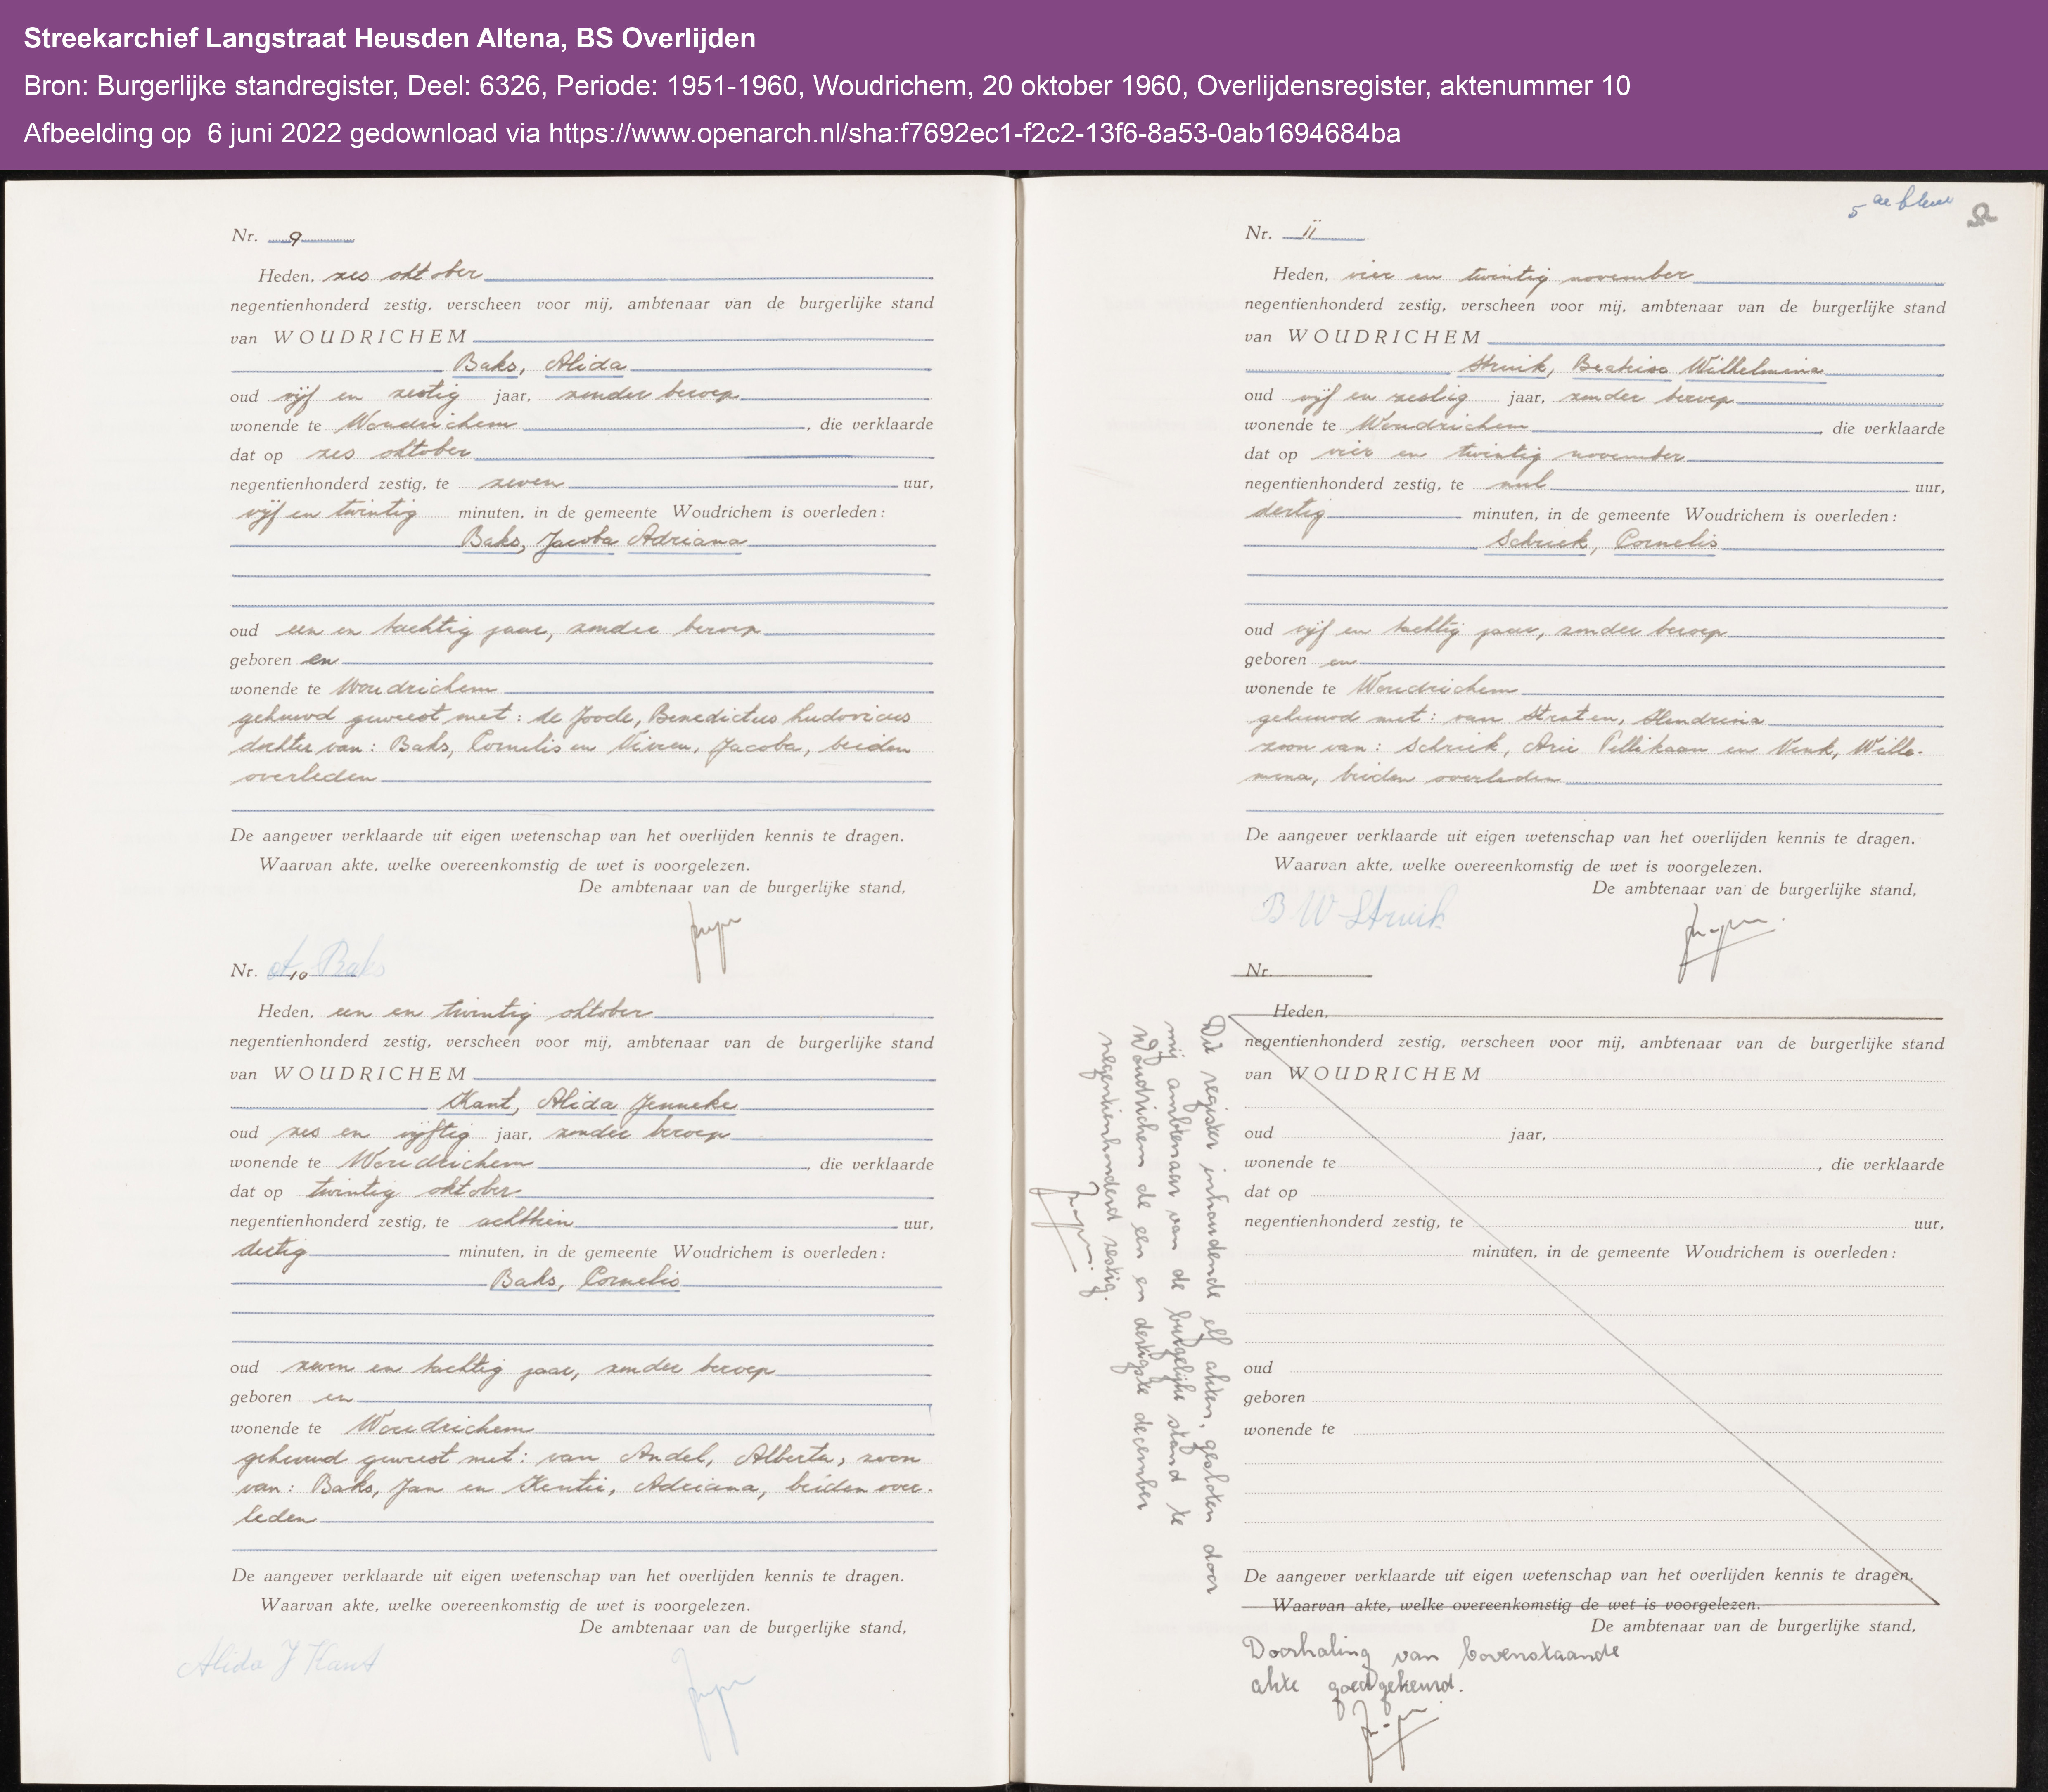 Streekarchief Langstraat Heusden Altena, BS Overlijden
Bron: Burgerlijke standregister, Deel: 6326, Periode: 1951-1960, Woudrichem, 20 oktober 1960, Overlijdensregister, aktenummer 10
Afbeelding op 6 juni 2022 gedownload via https://www.openarch.nl/sha:f7692ec1-f2c2-13f6-8a53-0ab1694684ba
Nr. 9
Heden, zes oktober
negentienhonderd zestig, verscheen voor mij, ambtenaar van de burgerlijke stand
van WOUDRICHEM
Baks, Alida
oud vijf en zestig jaar, zonder beroep
wonende te Woudrichem, die verklaarde
dat op zes oktober
negentienhonderd zestig, te zeven uur,
vijf en twintig minuten, in de gemeente Woudrichem is overleden:
Baks, Jacoba Adriana
oud een en tachtig jaar, zonder beroep
geboren en
wonende te Woudrichem
gehuwd geweest met: de Joode, Benedictus Ludovicus
dochter van: Baks, Cornelis en Jacoba, beiden
overleden
De aangever verklaarde uit eigen wetenschap van het overlijden kennis te dragen.
Waarvan akte, welke overeenkomstig de wet is voorgelezen.
De ambtenaar van de burgerlijke stand,
A Baks
Nr. 10
Heden, een en twintig oktober
negentienhonderd zestig, verscheen voor mij, ambtenaar van de burgerlijke stand
van WOUDRICHEM
Kant, Alida Jenneke
oud zes en vijftig jaar, zonder beroep
wonende te Woudrichem, die verklaarde
dat op twintig oktober
negentienhonderd zestig, te achttien uur,
dertig minuten, in de gemeente Woudrichem is overleden:
Baks, Cornelis
oud zeven en tachtig jaar, zonder beroep
geboren en
wonende te Woudrichem
gehuwd geweest met: van Andel, Alberta, zoon
van: Baks, Jan en Kentie, Adriana, beiden over-
leden
De aangever verklaarde uit eigen wetenschap van het overlijden kennis te dragen.
Waarvan akte, welke overeenkomstig de wet is voorgelezen.
De ambtenaar van de burgerlijke stand,
Alida J Kant
5
Nr. 11
Heden, vier en twintig november
negentienhonderd zestig, verscheen voor mij, ambtenaar van de burgerlijke stand
van WOUDRICHEM
Struik, Beatrisa Wilhelmina
oud vijf en zestig jaar, zonder beroep
wonende te Woudrichem die verklaarde
dat op vier en twintig november
negentienhonderd zestig, te nul uur,
dertig minuten, in de gemeente Woudrichem is overleden:
Schriek, Cornelis
oud vijf en tachtig jaar, zonder beroep
geboren en
wonende te Woudrichem
gehuwd met: van Straten, Hendrina
zoon van: Schriek, Arie Pellikaan en Vink, Wille-
mena, beiden overleden
De aangever verklaarde uit eigen wetenschap van het overlijden kennis te dragen.
Waarvan akte, welke overeenkomstig de wet is voorgelezen.
De ambtenaar van de burgerlijke stand,
B W Struik
Nr.
Heden,
negentienhonderd zestig, verscheen voor mij, ambtenaar van de burgerlijke stand
van WOUDRICHEM
oud jaar,
wonende te , die verklaarde
dat op
negentienhonderd zestig, te uur,
minuten, in de gemeente Woudrichem is overleden:
oud
geboren
wonende te
De aangever verklaarde uit eigen wetenschap van het overlijden kennis te dragen.
Waarvan akte, welke overeenkomstig de wet is voorgelezen.
De ambtenaar van de burgerlijke stand,
Doorhaling van bovenstaande
akte goedgekeurd.
Dit register inhoudende elf akten, gesloten door
mij ambtenaar van de burgelijke stand te
Woudrichem de een en dertigste december
negentienhonderd zestig.